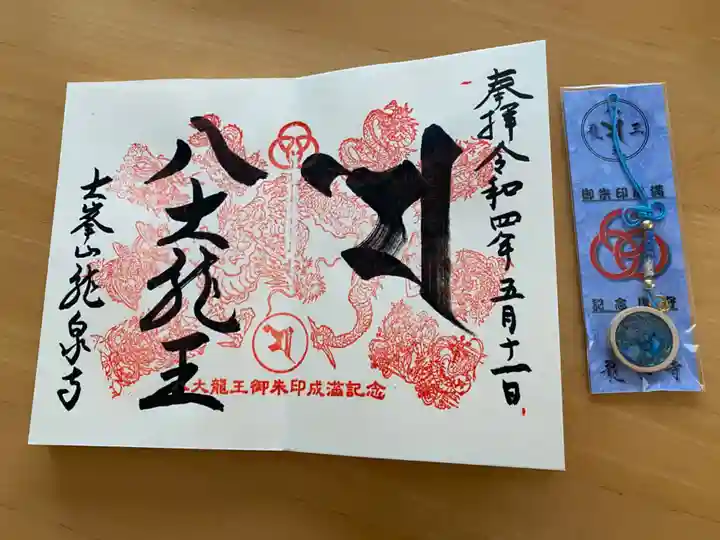 奉拝令和四年五月十一日
八大龍王
大峯山龍泉寺
大龍王御朱印成満記念
龍王
御朱印成満
記念